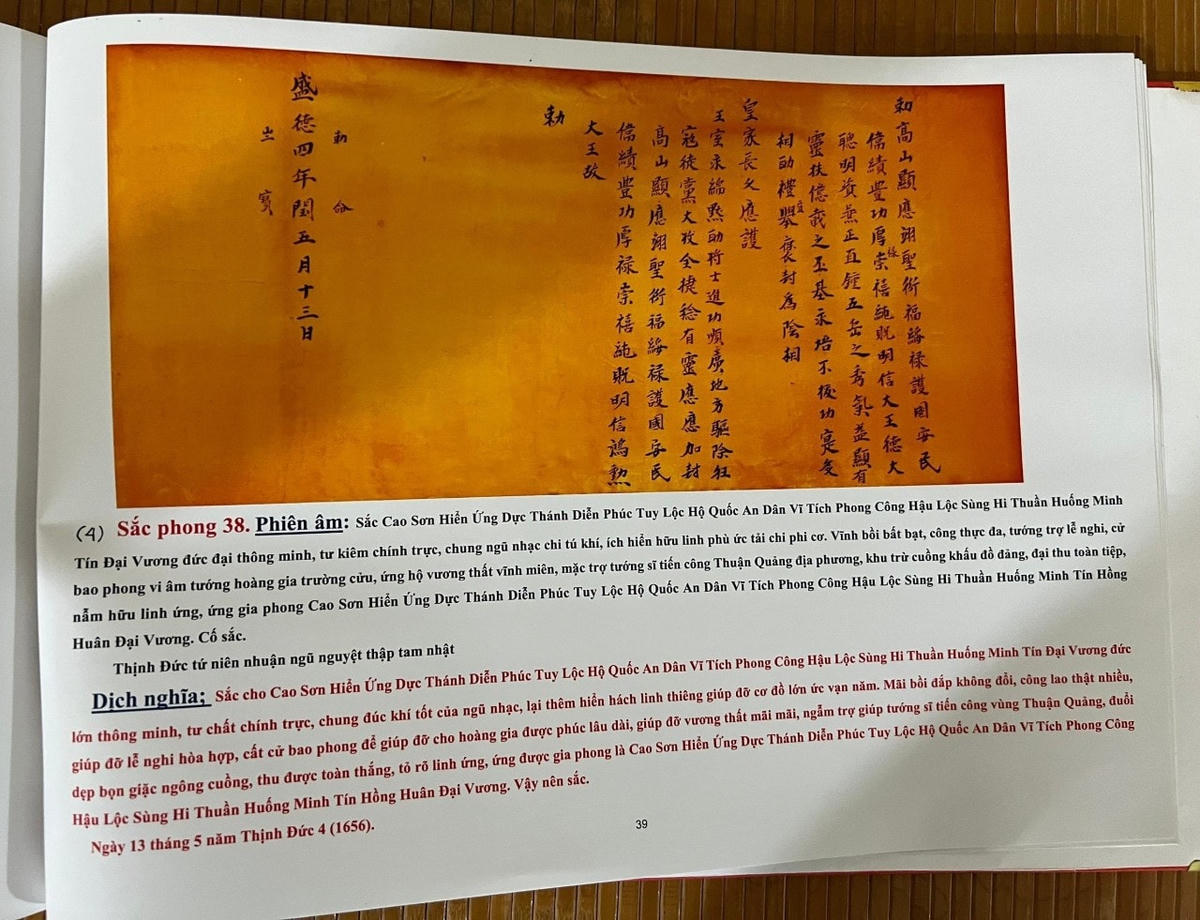 勅高山顯應翊聖衍福綏禄護囯安民
偉績豊功厚禄崇禧純貺明信大王德大
聰明資兼正直鍾五岳之秀氣益顯有
靈扶億哉之丕基永培不拔功寔多
相助禮宜舉褒封爲陰相
皇家長久應護
王室永綿默助將士進功順廣地方驅除狂
寇徒黨大攻全捷稔有靈應應加封
髙山顯應翊聖衍福綏禄護國安民
偉績豊功厚禄崇禧純貺明信鴻勲
大王故
勅
勅命
盛德四年閏五月十三日
之寳
(4) Sắc phong 38. Phiên âm: Sắc Cao Sơn Hiển Ứng Dực Thánh Diễn Phúc Tuy Lộc Hộ Quốc An Dân Vĩ Tích Phong Công Hậu Lộc Sùng Hi Thuần Huống Minh
Tín Đại Vương đức đại thông minh, tư kiêm chính trực, chung ngũ nhạc chi tú khí, ích hiển hữu linh phù ức tải chi phi cơ. Vĩnh bồi bất bạt, công thực đa, tướng trợ lễ nghi, cử
bao phong vi âm tướng hoàng gia trường cửu, ứng hộ vương thất vĩnh miên, mặc trợ tướng sĩ tiến công Thuận Quảng địa phương, khu trừ cuồng khấu đồ đảng, đại thu toàn tiệp,
nẫm hữu linh ứng, ứng gia phong Cao Sơn Hiển Ứng Dực Thánh Diễn Phúc Tuy Lộc Hộ Quốc An Dân Vĩ Tích Phong Công Hậu Lộc Sùng Hi Thuần Huống Minh Tín Hồng
Huân Đại Vương. Cố sắc.
Thịnh Đức tứ niên nhuận ngũ nguyệt thập tam nhật
Dịch nghĩa; Sắc cho Cao Sơn Hiển Ứng Dực Thánh Diễn Phúc Tuy Lộc Hộ Quốc An Dân Vĩ Tích Phong Công Hậu Lộc Sùng Hi Thuần Huống Minh Tín Đại Vương đức
lớn thông minh, tư chất chính trực, chung đúc khí tốt của ngũ nhạc, lại thêm hiển hách linh thiêng giúp đỡ cơ đồ lớn ức vạn năm. Mãi bồi đắp không đổi, công lao thật nhiều,
giúp đỡ lễ nghi hòa hợp, cất cử bao phong để giúp đỡ cho hoàng gia được phúc lâu dài, giúp đỡ vương thất mãi mãi, ngẫm trợ giúp tướng sĩ tiến công vùng Thuận Quảng, đuổi
dẹp bọn giặc ngông cuồng, thu được toàn thắng, tỏ rõ linh ứng, ứng được gia phong là Cao Sơn Hiển Ứng Dực Thánh Diễn Phúc Tuy Lộc Hộ Quốc An Dân Vĩ Tích Phong Công
Hậu Lộc Sùng Hi Thuần Huống Minh Tín Hồng Huân Đại Vương. Vậy nên sắc.
Ngày 13 tháng 5 năm Thịnh Đức 4 (1656).
39